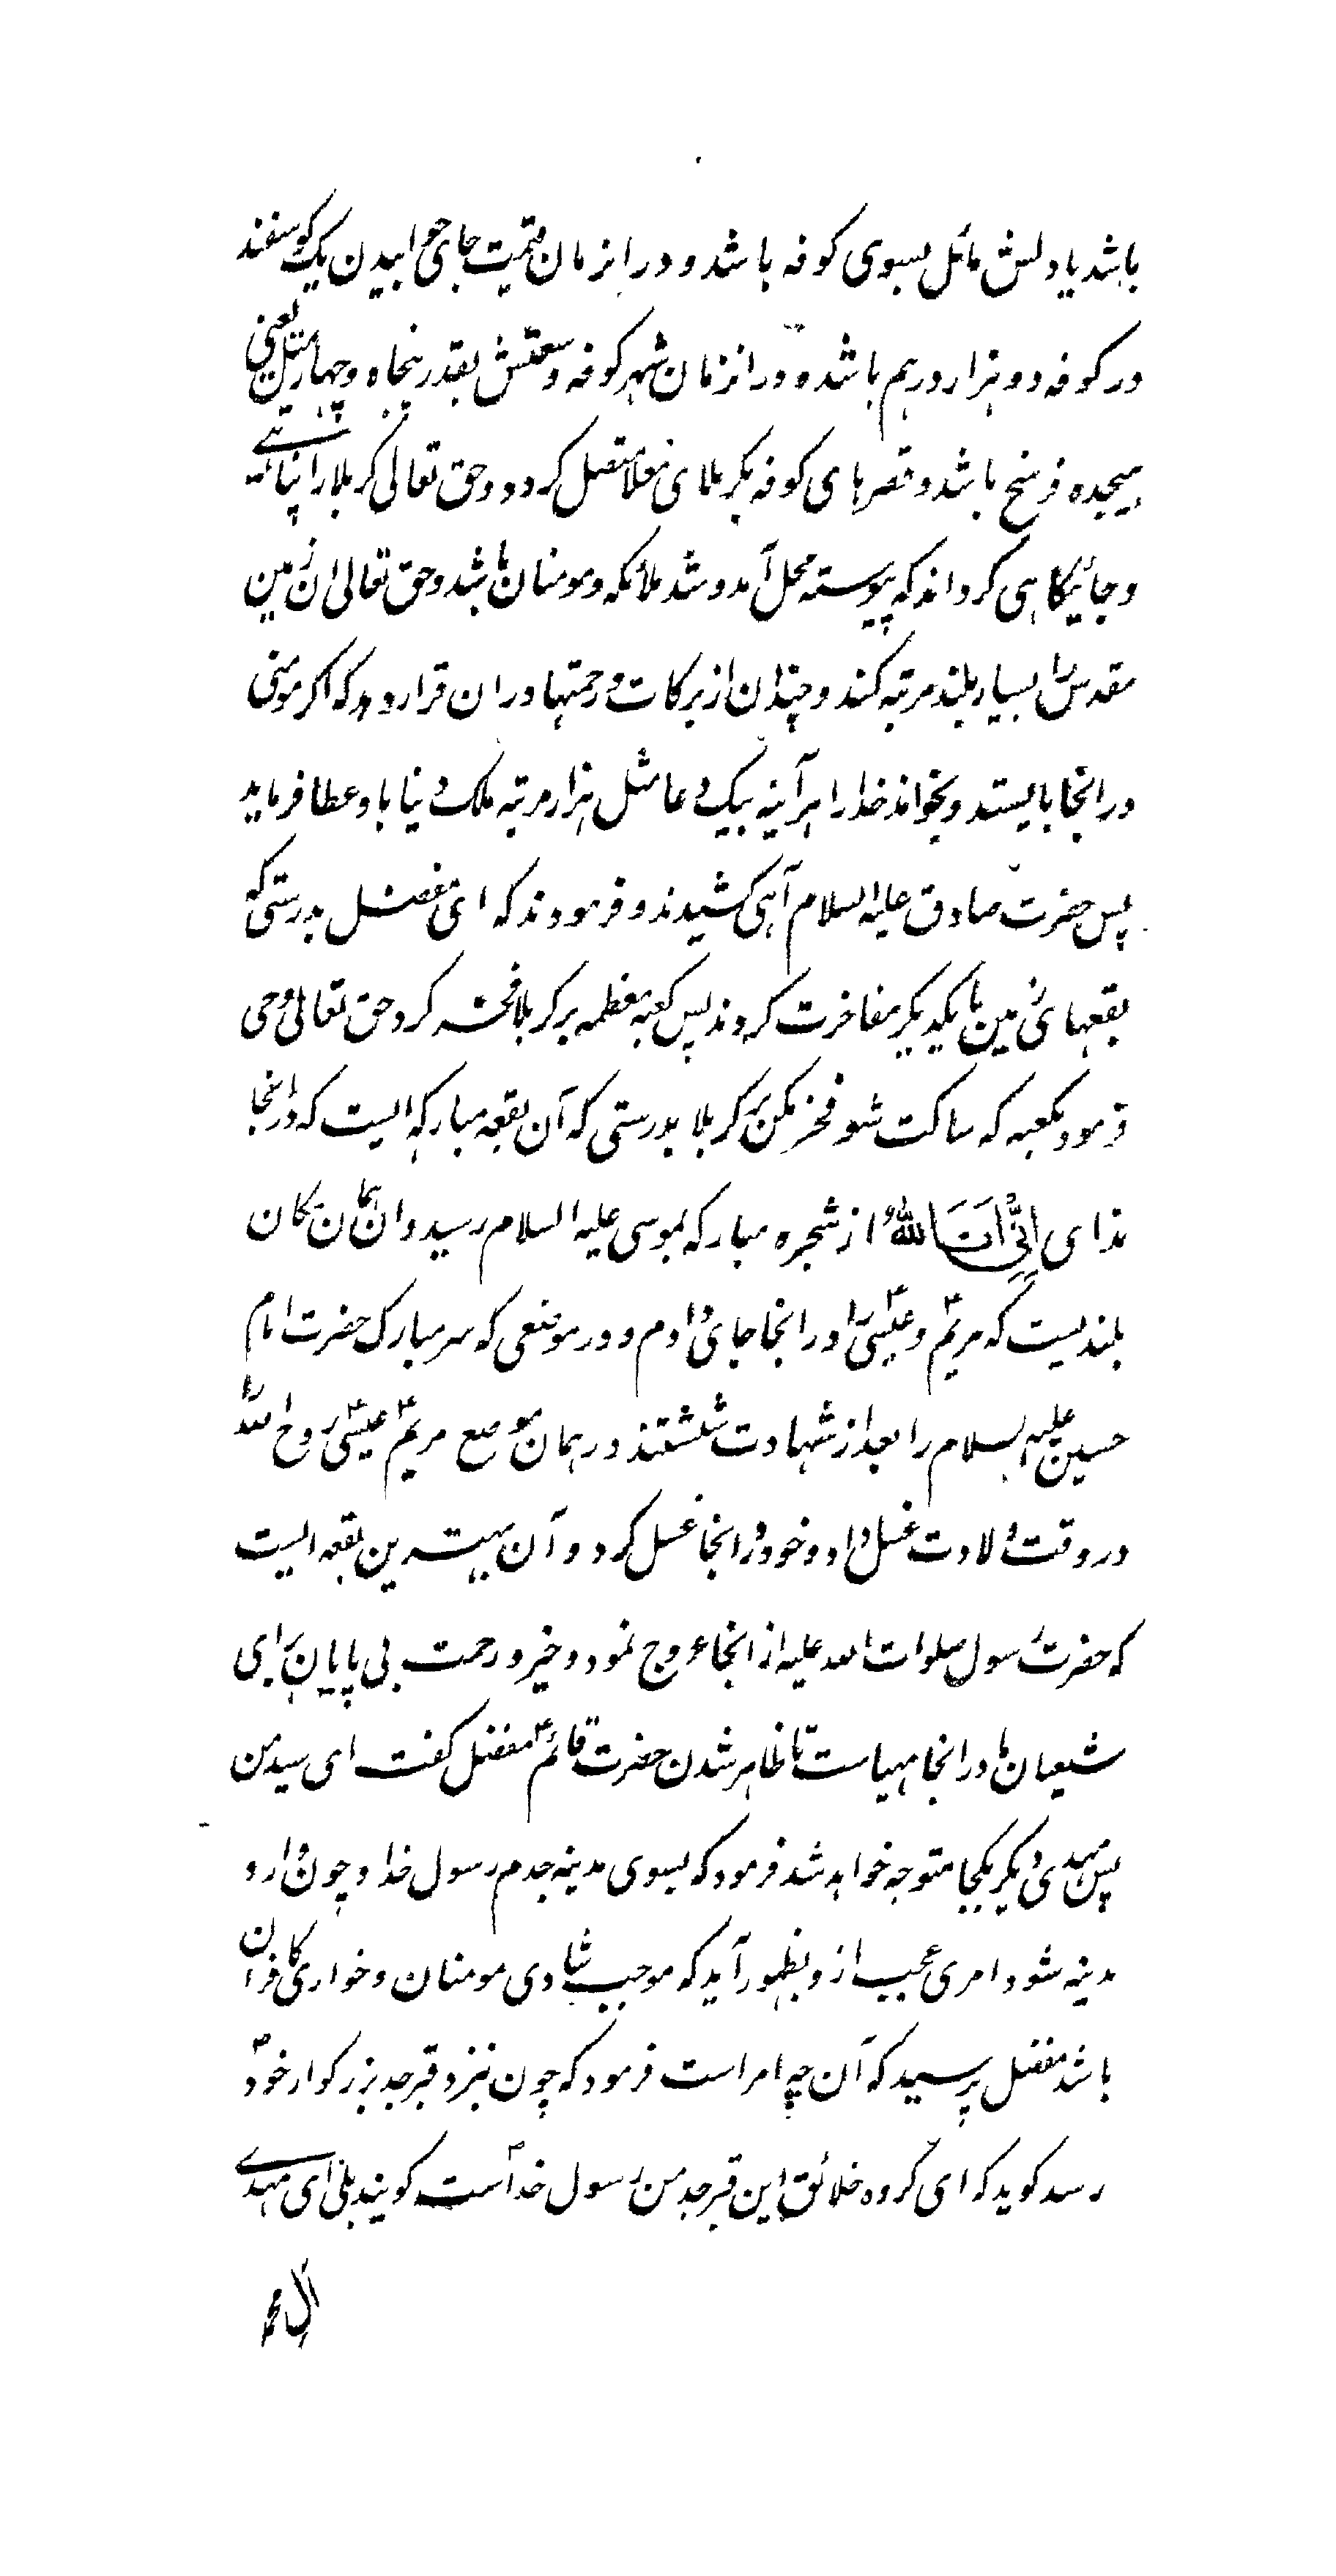 باشد یا دلش مائل بسوی کوفه باشد و در انزمان قیمت جای خوابیدن یک کوسفند
در کوفه دو هزار درهم باشد و در انزمان شهر کوفه وسعتش بقدر پنجاه و چهار میل یعنی
هیجده فرسخ باشد و قصرهای کوفه بکربلای معلا متصل کردد و حق تعالی کربلا را پناهی
و جائیکاهی کرداند که پیوسته محل آمد و شد ملائکه و مومنان باشد و حق تعالی ان زمین
مقدس را بسیار بلند مرتبه کند و چندان از برکات و رحمتها در ان قرار دهد که اکر مومنی
در انجا بایستد و بخواند خدا را هر آینه بیک دعا مثل هزار مرتبه ملک دنیا باو عطا فرماید
پس حضرت صادق علیه السلام آهی کشیدند و فرمودند که ای مفضل بدرستی که
بقعهای زمین با یکدیکر مفاخرت کردند پس کعبه معظمه بر کربلا فخر کرد حق تعالی وحی
فرمود بکعبه که ساکت شو و فخر مکن بر کربلا بدرستی که آن بقعه مبارکه ایست که در انجا
ندای اِنّی اَنَا اللهُ از شجره مبارکه بموسی علیه السلام رسید و ان همان مکان
بلندیست که مریم ؑ و عیسی ؑ را در انجا جای دادم و در موضعی که سر مبارک حضرت امام
حسین علیه السلام را بعد از شهادت شستند در همان موضع مریم ؑ عیسی ؑ روح الله را
در وقت ولادت غسل داد و خود در انجا غسل کرد و آن بهترین بقعه ایست
که حضرت رسول صلوات الله علیه از انجا عروج نمود و خیر و رحمت بی پایان برای
شیعان ما در انجا مهیاست تا ظاهر شدن حضرت قائم ؑ مفضل کفت ای سید من
پس مهدی دیکر بکجا متوجه خواهد شد فرمود که بسوی مدینه جدم رسول خدا و چون وارد
مدینه شود امری عجیب از و بظهور آید که موجب شادی مومنان و خواری کافران
باشد مفضل پرسید که آن چه امر است فرمود که چون بنزد قبر جد بزرکوار خود ؐ
رسد کوید که ای کروه خلائق این قبر جد من رسول خدا ؐ است کویند بلی ای مهدی
آل محمد